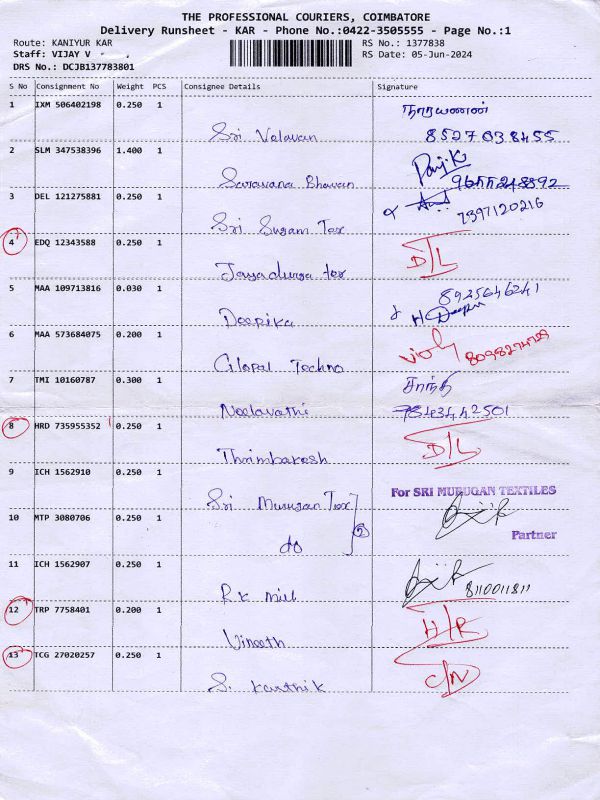 THE PROFESSIONAL COURIERS, COIMBATORE
Delivery Runsheet - KAR - Phone No.:0422-3505555 - Page No.:1
Route: KANIYUR KAR RS No.: 1377838
Staff: VIJAY V - , RS Date: 05-Jun-2024
DRS No.: DCJB137783801
S No Consignment No Weight PCS Consignee Details Signature
1 IXM 506402198 0.250 1 நாராயணன்
Sri Velavan 8527038455
2 SLM 347538396 1.400 1
Saravana Bhavan 9655248892
3 DEL 121275881 0.250 1 7397120216
Sri Sugam Tex
4 EDQ 12343588 0.250 1 D/L
Jayadurga tex
5 MAA 109713816 0.030 1 8925646241
Deepika
6 MAA 573684075 0.200 1
Glopal Techno 8098274729
7 TMI 10160787 0.300 1 சாந்தி
Neelavathi 7843442501
8 HRD 735955352 0.250 1 D/L
Thrimbakesh
9 ICH 1562910 0.250 1
Sri Murugan Tex For SRI MURUGAN TEXTILES
10 MTP 3080706 0.250 1 2
do Partner
11 ICH 1562907 0.250 1
RK mill 8110011811
12 TRP 7758401 0.200 1 H/R
Vineeth
13 TCG 27020257 0.250 1 C/N
S. Karthik